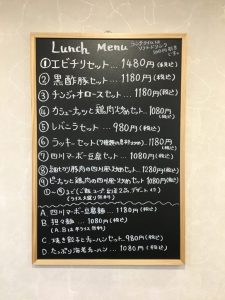 Lunch Menu
ランチタイムは
ソフトドリンク
100円引き
です
① エビチリセット… 1480円(税込)
② 黒酢豚セット… 1180円(税込)
③ チンジャオロースセット… 1180円(税込)
④ カシューナッツと鶏肉炒めセット… 1080円(税込)
⑤ レバニラセット… 980円(税込)
⑥ ラッキーセット 1080円(税込)
⑦ 四川マーボー豆腐セット… 1080円(税込)
⑧ 豚肉の四川風炒めセット 1280円(税込)
⑨ ピーナッツと鶏肉の四川風炒めセット 1080円(税込)
A. 四川マーボー豆腐麺… 1180円(税込)
B. 担々麺… 1080円(税込)
C. 焼き餃子とチャーハンセット 980円(税込)
D. たっぷり海老チャーハン… 1080円(税込)